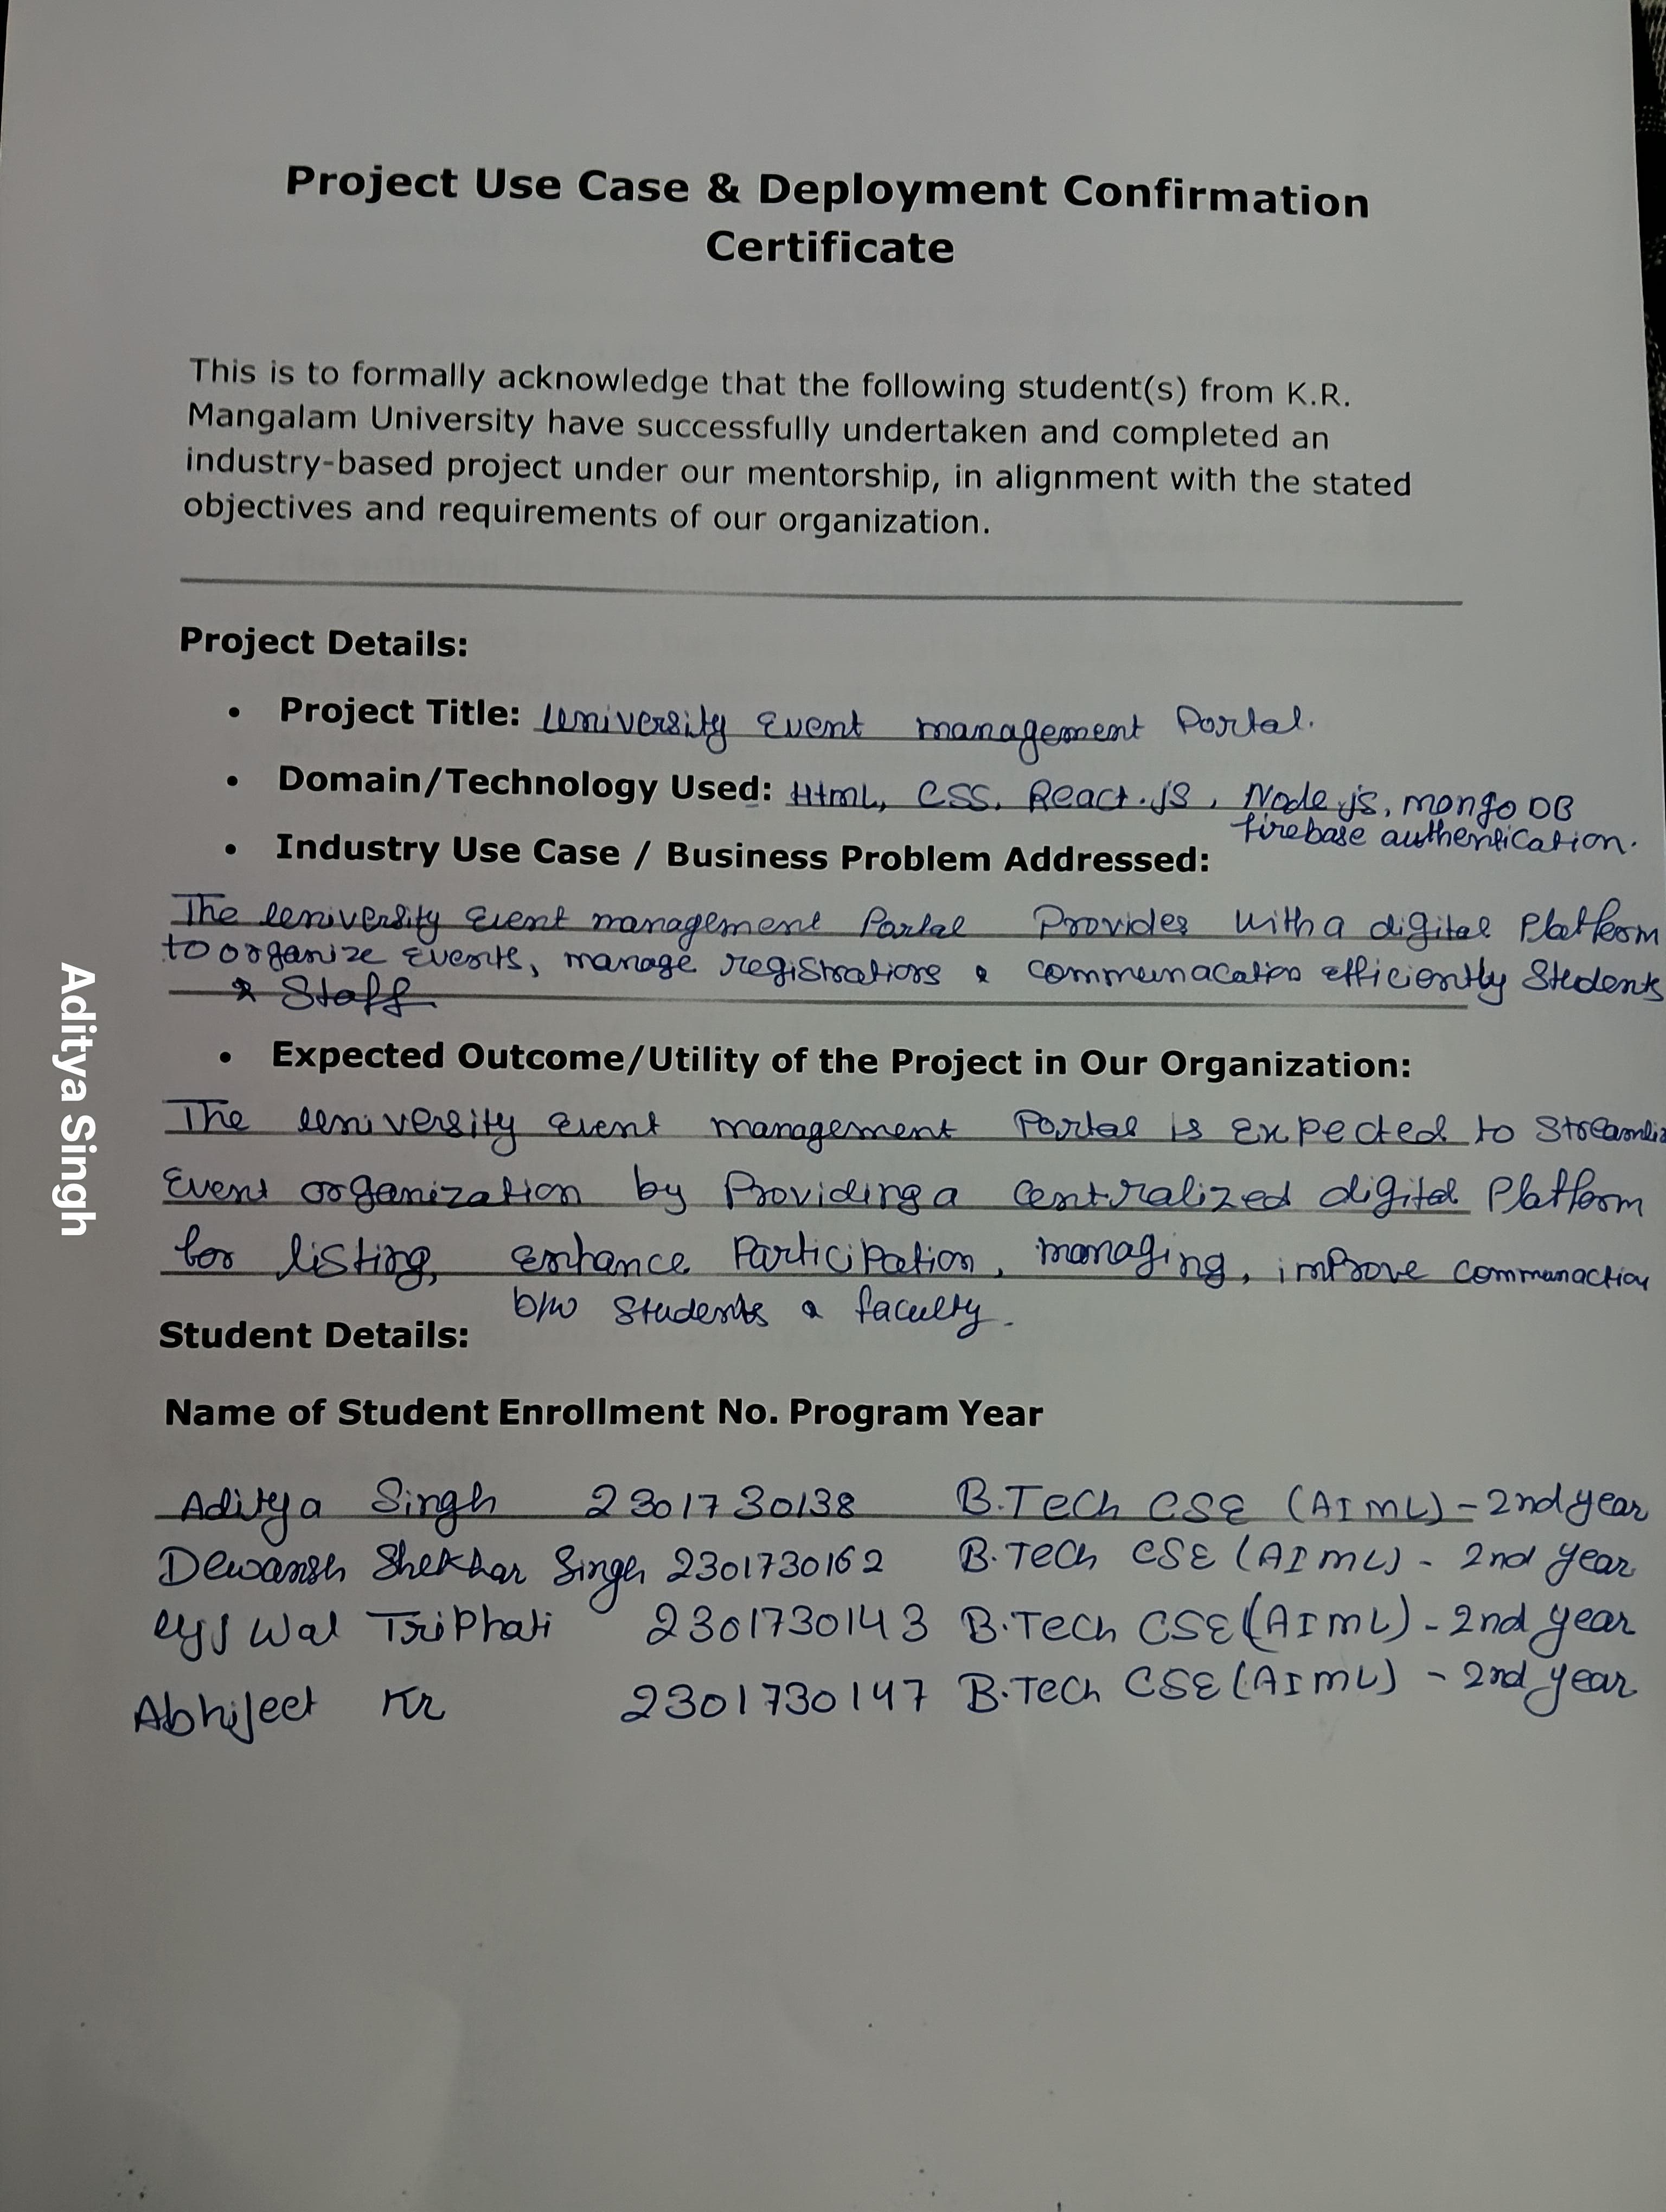 Project Use Case & Deployment Confirmation
Certificate
This is to formally acknowledge that the following student(s) from K.R.
Mangalam University have successfully undertaken and completed an
industry-based project under our mentorship, in alignment with the stated
objectives and requirements of our organization.
Project Details:
• Project Title: University Event management Portal.
• Domain/Technology Used: Html, CSS, React.js, Node js, mongo DB
firebase authentication.
• Industry Use Case / Business Problem Addressed:
The University Event management Portal Provides with a digital Platform
to organize Events, manage registrations & communacation efficiently Students
& Staff
• Expected Outcome/Utility of the Project in Our Organization:
The University Event management Portal is Expected to
Event organization by Providing a Centralized digital Platform
for listing, enhance Participation, managing, improve communaction
b/w Students & faculty.
Student Details:
Name of Student Enrollment No. Program Year
Aditya Singh 2301730138 B.Tech CSE (AIML) - 2nd year
Dewansh Shekhar Singh 2301730162 B.Tech CSE (AIML) - 2nd year
Ujjwal Triphati 2301730143 B.Tech CSE (AIML) - 2nd year
Abhijeet Kr 2301730147 B.Tech CSE (AIML) - 2nd year
Aditya Singh